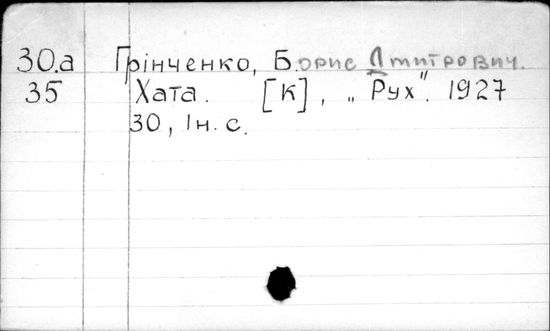 30.а Грінченко, Борис Дмитрович.
35 Хата. [К], „Рух". 1927
30, Ін. с.